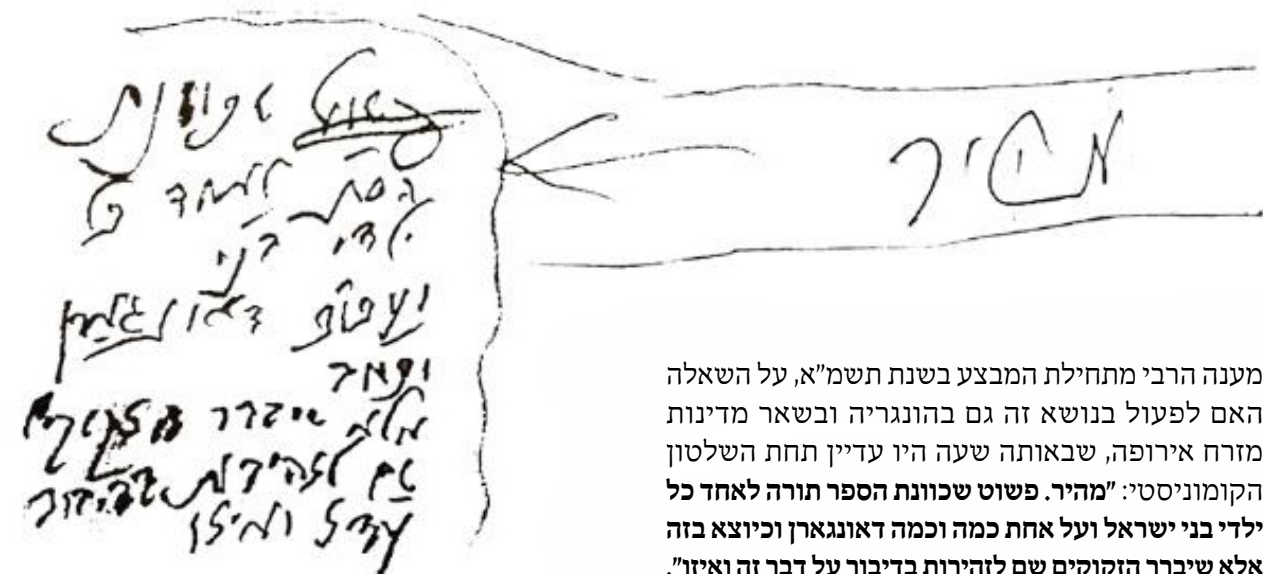 מהיר
פשוט שכוונת
הס"ת לאחד כל
ילדי בנ"י
ועאכו"כ דאונגארן
וכיו"ב
אלא שיברר הזקוקים
שם לזהירות בדיבור
עד"ז ואיזו
מענה הרבי מתחילת המבצע בשנת תשמ"א, על השאלה
האם לפעול בנושא זה גם בהונגריה ובשאר מדינות
מזרח אירופה, שבאותה שעה היו עדיין תחת השלטון
הקומוניסטי: "מהיר. פשוט שכוונת הספר תורה לאחד כל
ילדי בני ישראל ועל אחת כמה וכמה דאונגארן וכיוצא בזה
אלא שיברר הזקוקים שם לזהירות בדיבור על דבר זה ואיזו".